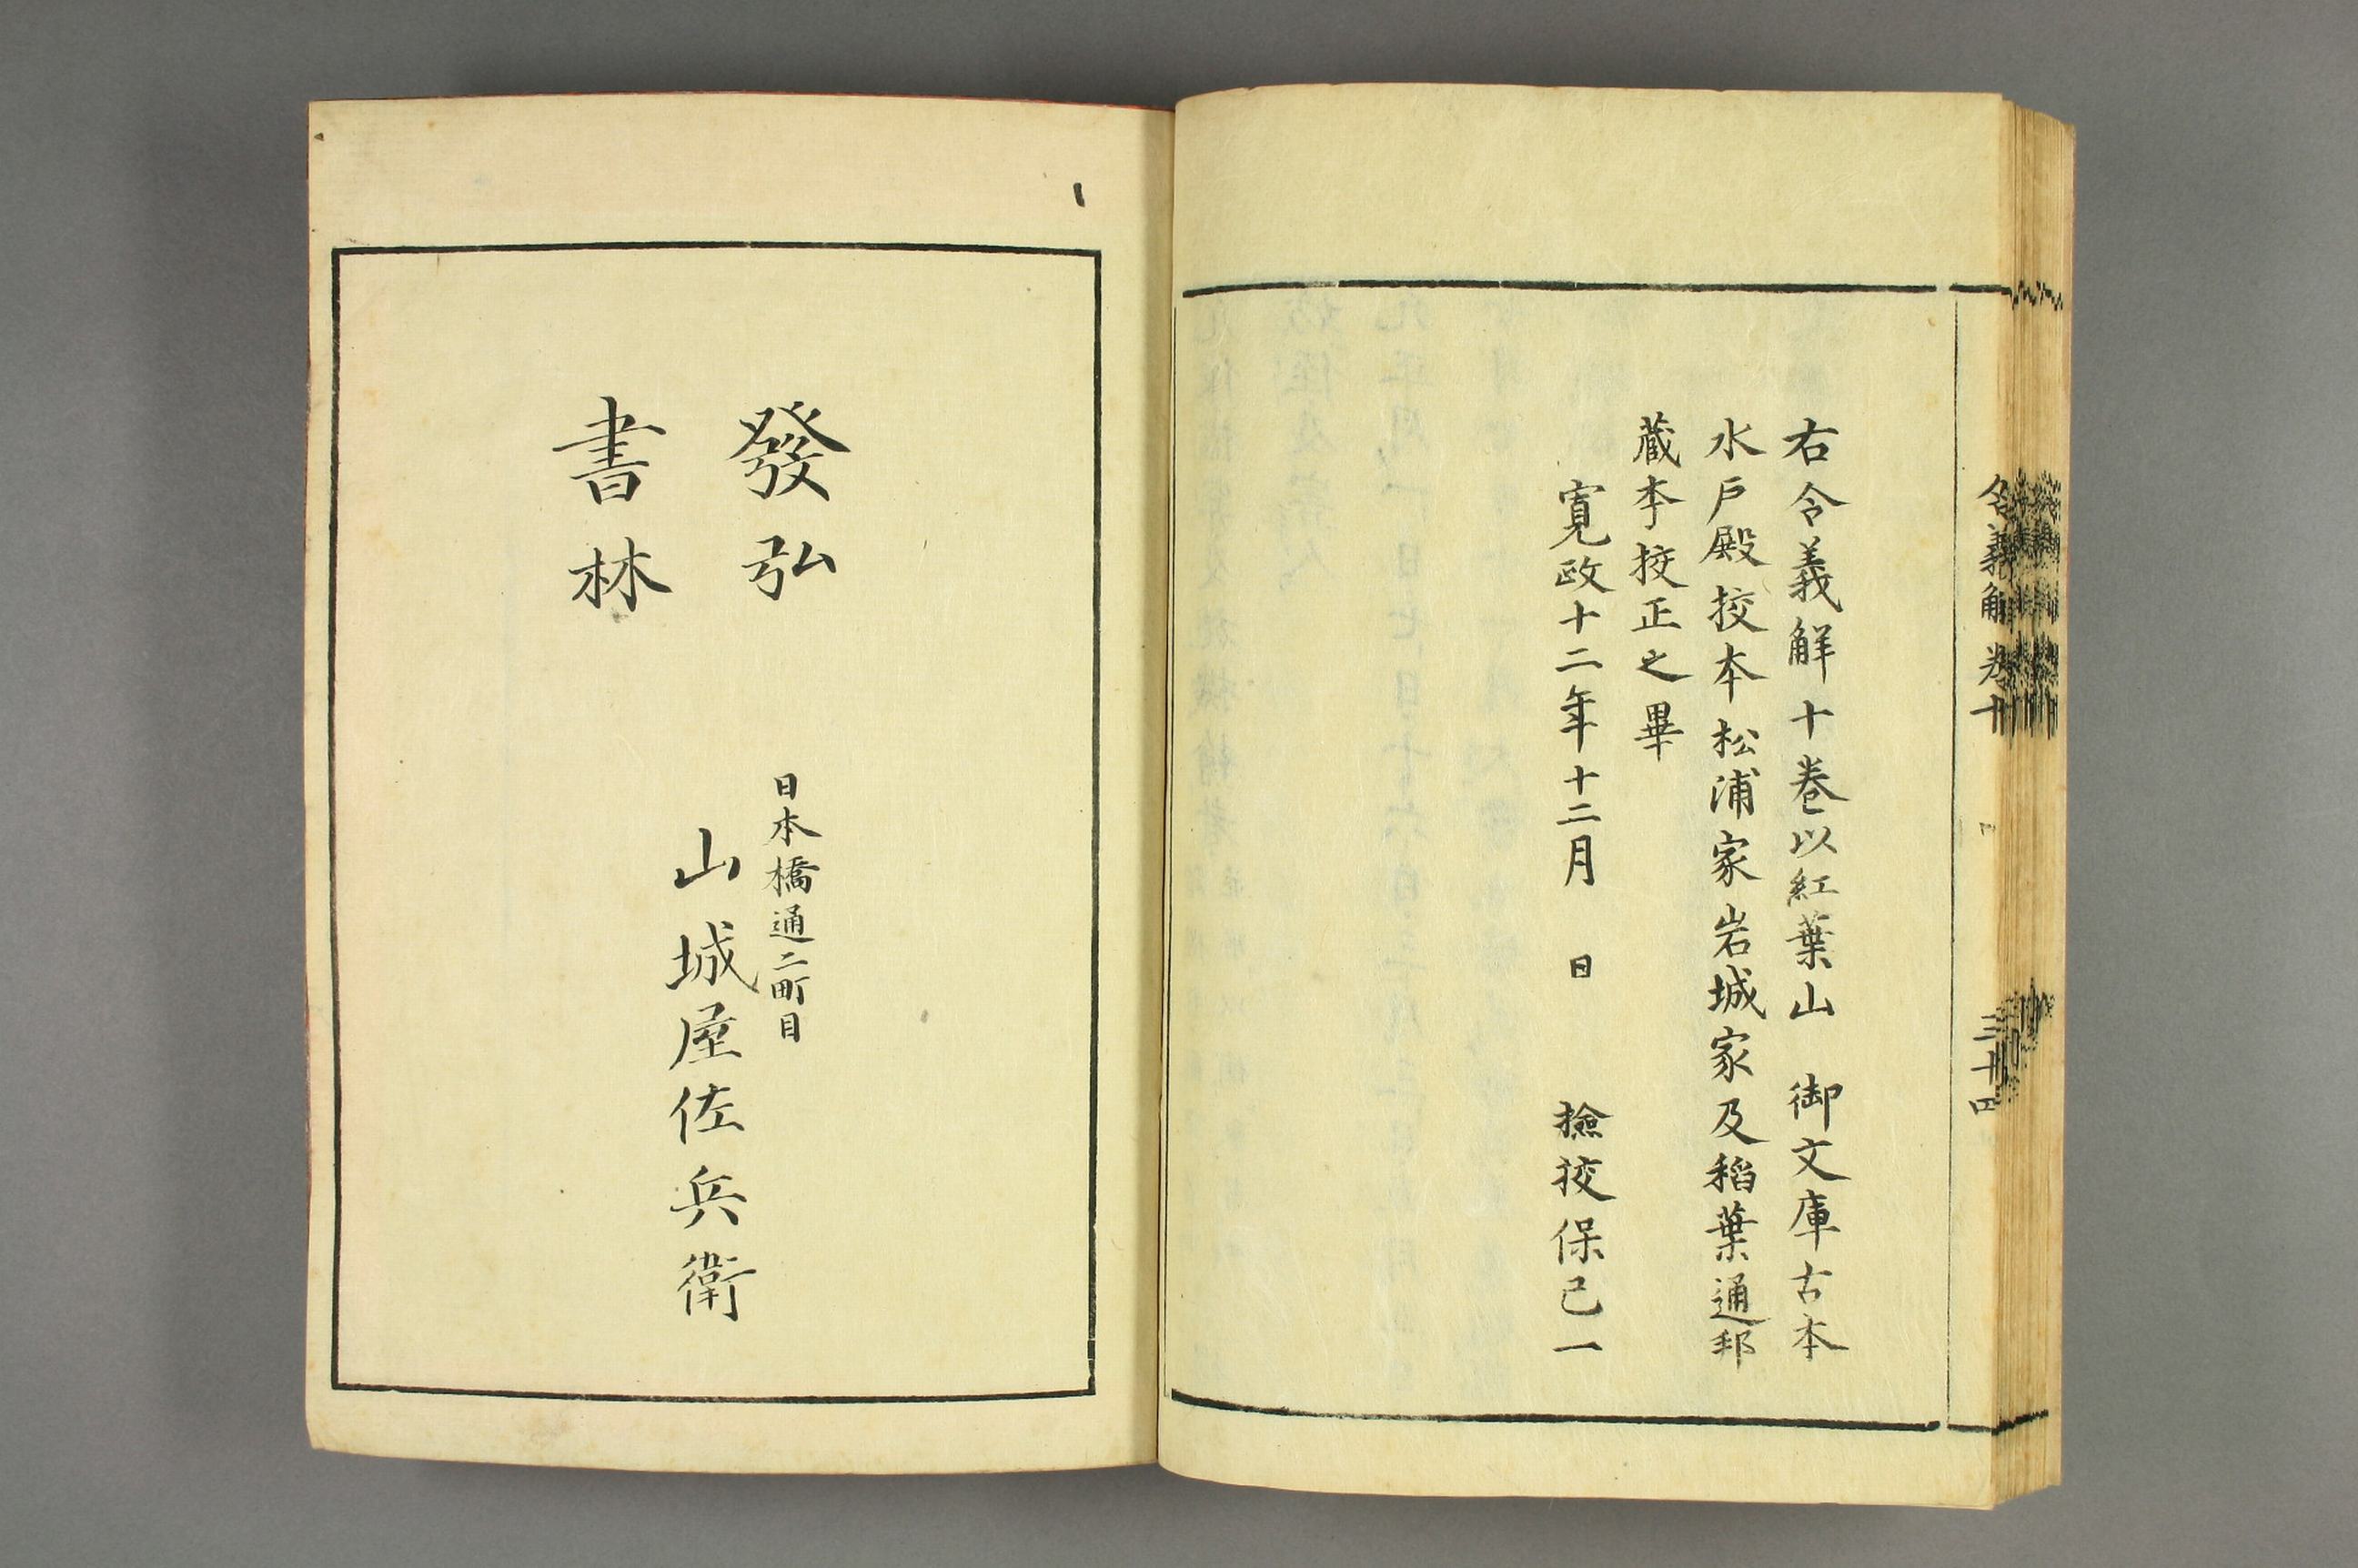 令義解卷十
三十四
右令義解十卷以紅葉山　御文庫古本
水戸殿挍本松浦家岩城家及稻葉通邦
蔵本挍正之畢
寛政十二年十二月　日　撿挍保己一
發弘
書林
日本橋通二町目
山城屋佐兵衛